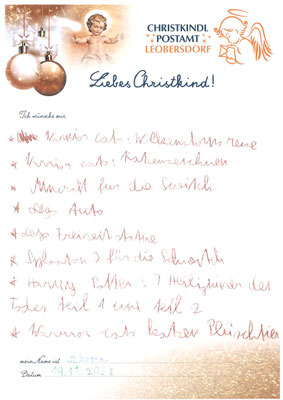 CHRISTKINDL
POSTAMT
LEOBERSDORF
Liebes Christkind!
Ich wünsche mir
* Warrior cats: Wolkensterns reise
* Warrior cats:
* Mincraft für die Switch
* Lego Auto
* Lego Freiheitstatue
* Splaton 3 für die Switch
* Harry Potter: 7 Heiligtümer des
Todes teil 1 und teil 2
* Warrior cats Plüschtier
mein Name ist
Datum 19.11.